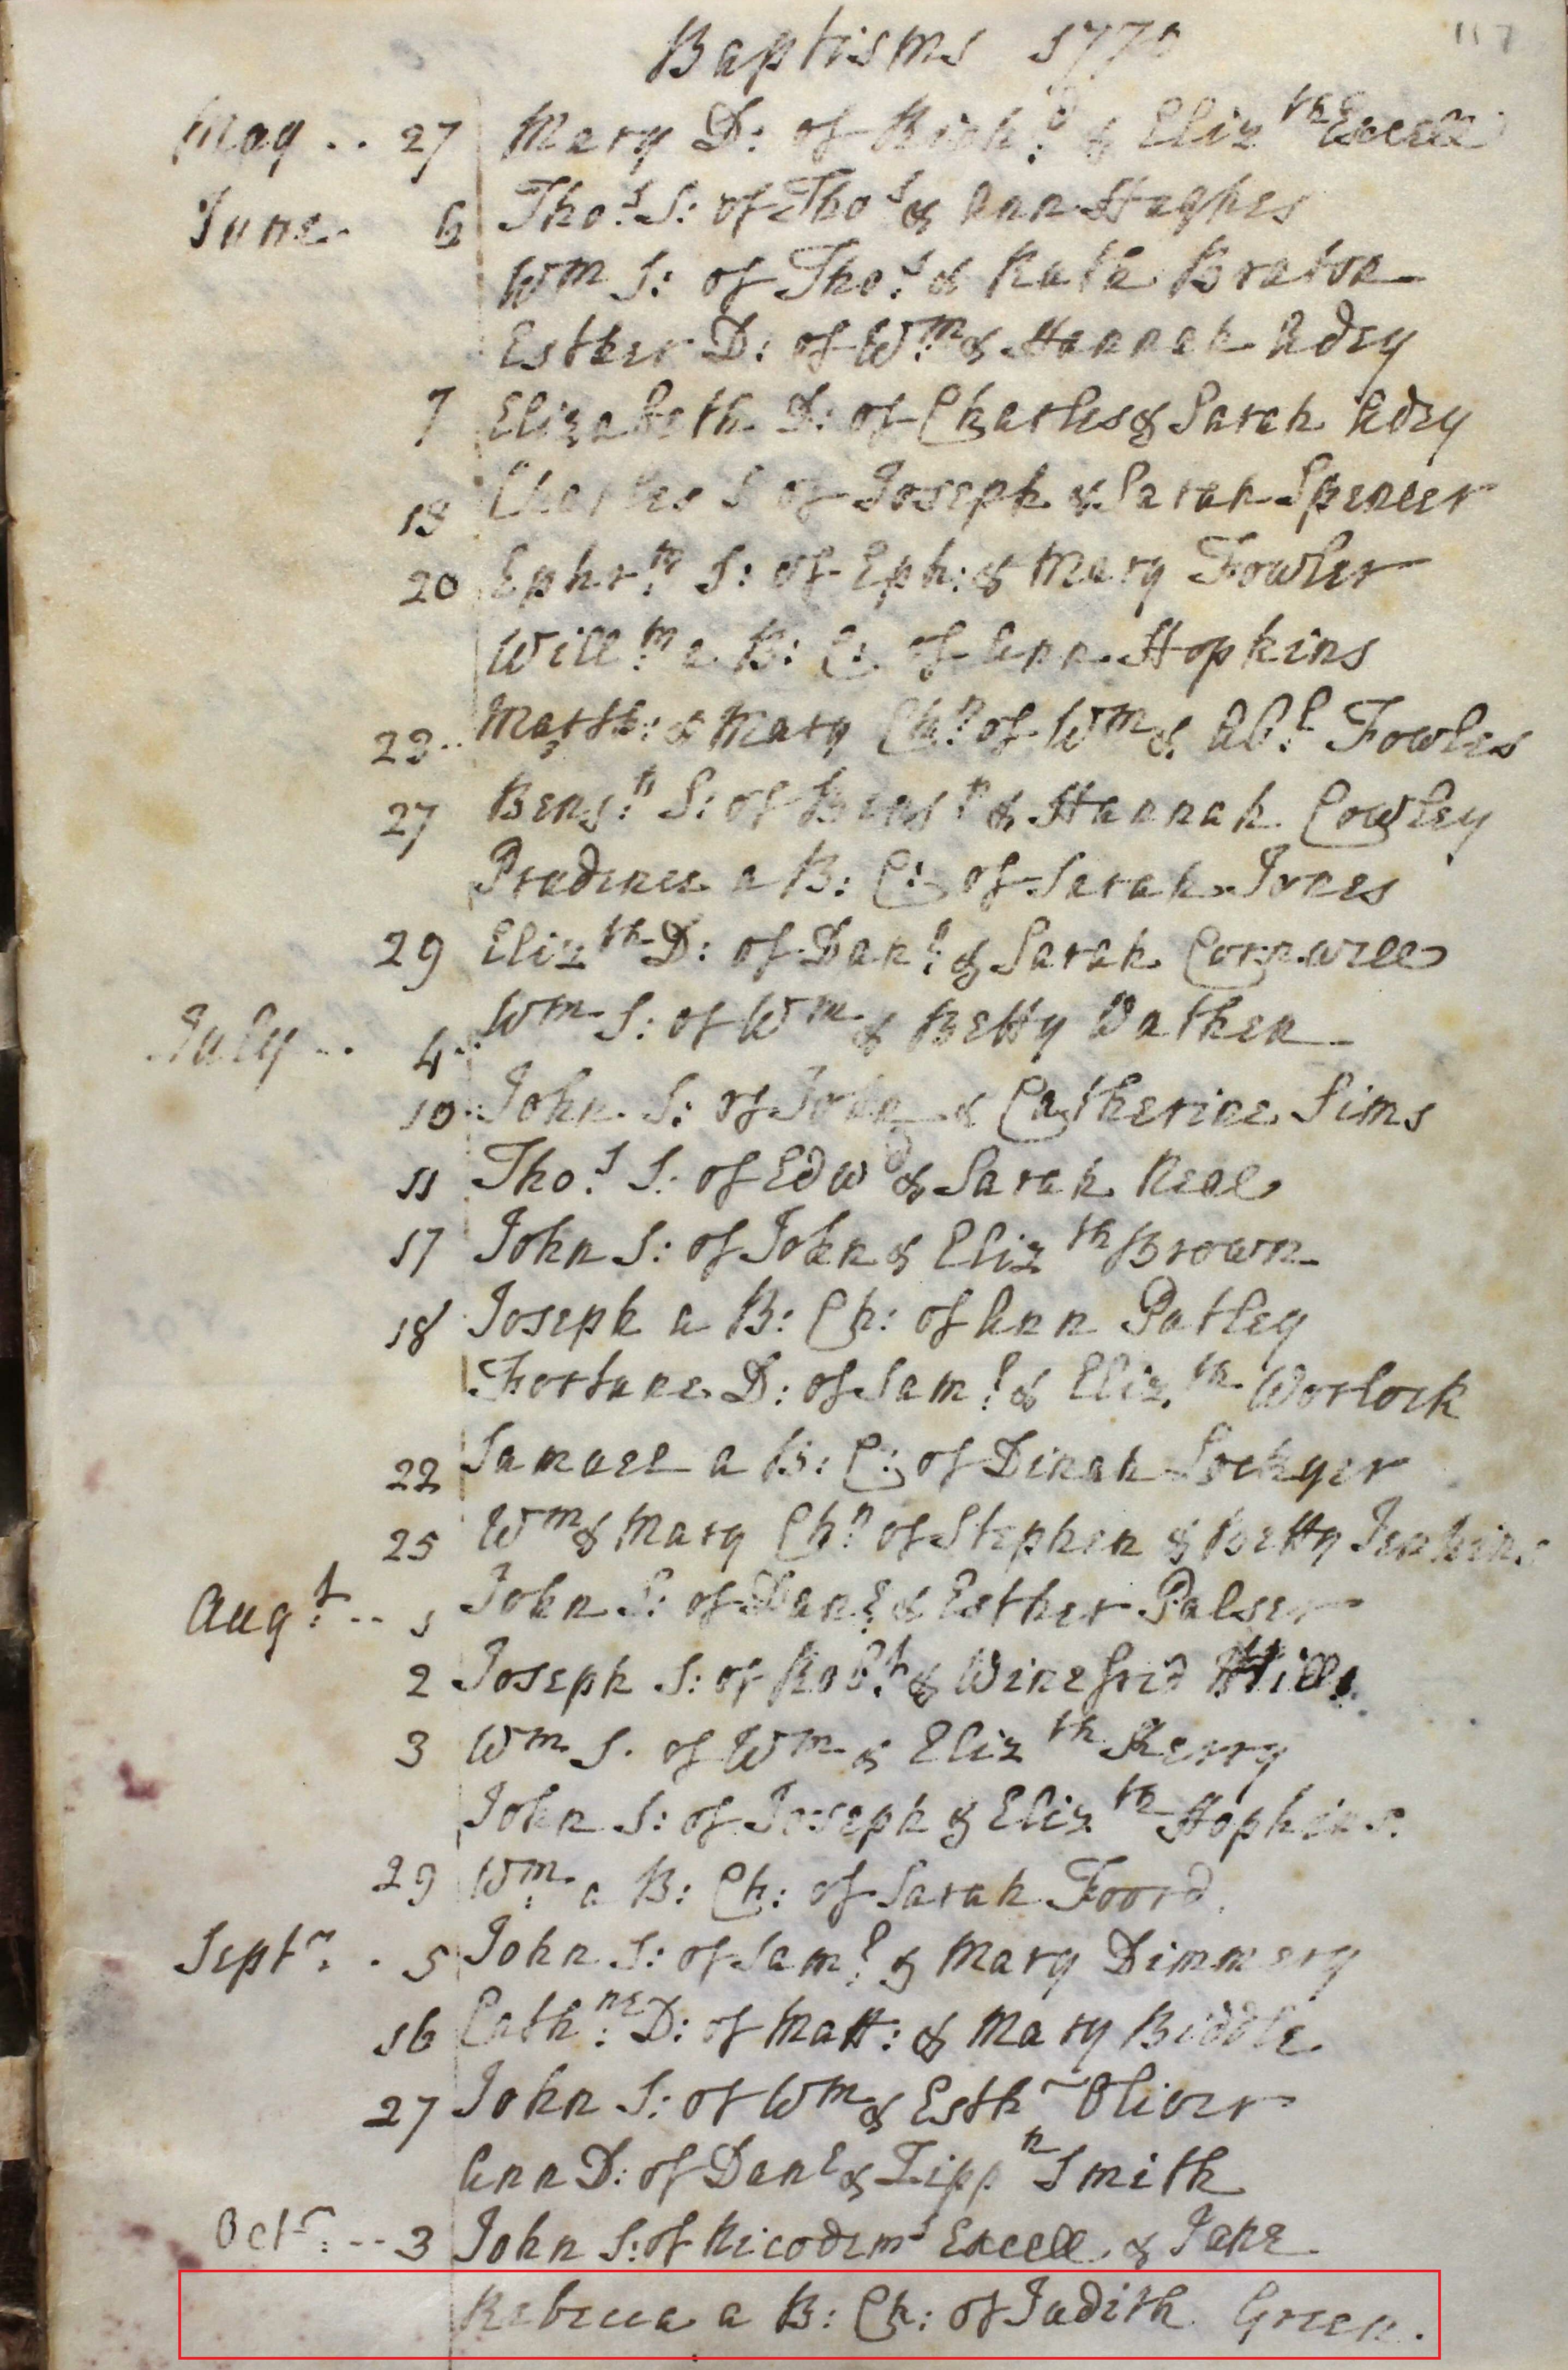 117
Baptisms 1770
May .. 27 Mary D: of Rich:d & Eliz th Excell
June. 6 Tho:s S: of Tho s & Ann Hughes
Wm S: of Tho:s & Ruth Braton
Esther D: of W:m & Hannah Adey
7 Elizabeth D: of Charles & Sarah Adey
13 Charles S of Joseph & Sarah Spencer
20 Ephr:m S: of Eph: & Mary Fowler
Will:m a B: C: of Ann Hopkins
23.. Marth: & Mary Ch:n of Wm & Ab:l Fowles
27 Benj:n S: of Benj n & Hannah Cowley
Prudence a B: C: of Sarah Jones
29 Eliz th D: of Dan:l & Sarah Cornwell
July .. 4 Wm S: of Wm & Betty Vathen
10 John S: of John & Catherine Sims
11 Tho:s S: of Edw d & Sarah Neal
17 John S: of John & Eliz th Brown
18 Joseph a B: Ch: of Ann Patley
Fortune D: of Sam:l & Eliz th Worlock
22 Samuel a B: C: of Dinah Lockyer
25 Wm & Mary Ch:n of Stephen & Betty Jenkins
Aug:t .. 1 John S: of Dan:l & Esther Palser
2 Joseph S: of Rob:t & Winefrid Hill
3 Wm S. of Wm & Eliz th Sherry
John S: of Joseph & Eliz th Hopkins.
29 W:m a B: Ch: of Sarah Foord.
Sept r. . 5 John S: of Sam:l & Mary Dimmery
16 Cath:ne D: of Matt: & Mary Biddle.
27 John S: of Wm & Esth r Oliver
Ann D: of Dan l & Zipp n Smith
Oct r: -- 3 John S: of Nicodem s Excell & Jane
Rebecca a B: Ch: of Judith Green.